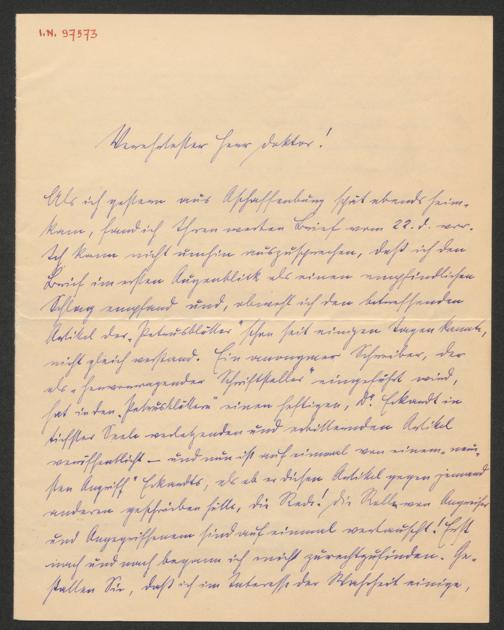 I.N. 97573
Verehrtester Herr Doktor!
Als ich gestern aus Aschaffenburg spät abends heim-
kam, fand ich Ihren werten Brief vom 22. d. vor.
Ich kann nicht umhin auszusprechen, daß ich den
Brief im ersten Augenblick als einen empfindlichen
Schlag empfand und, obwohl ich den betreffenden
Artikel der „Petrusblätter" schon seit einigen Tagen kannte,
nicht gleich verstand. Ein anonymer Schreiber, der
als „hervorragender Schriftsteller" eingeführt wird,
hat in den „Petrusblättern" einen heftigen, Dr. Eckardt in
tiefster Seele verletzenden und erbitternden Artikel
veröffentlicht — und nun ist auf einmal von einem „neu-
sten Angriff" Eckardts, als ob er diesen Artikel gegen jemand
anderen geschrieben hätte, die Rede! Die Rollen von Angreifer
und Angegriffenem sind auf einmal vertauscht! Erst
nach und nach begann ich mich zurechtzufinden. Ge-
statten Sie, daß ich im Interesse der Wahrheit einige,